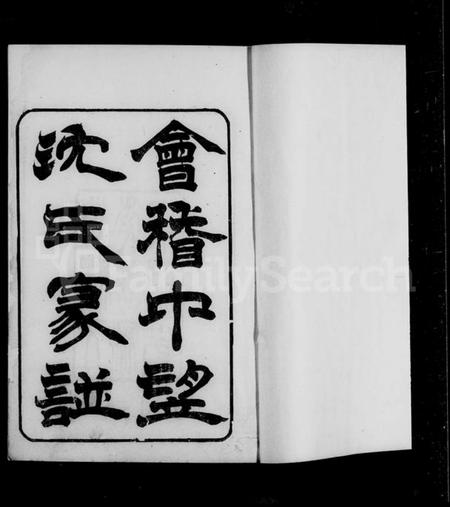 會稽中望
沈氏家譜
FamilySearch